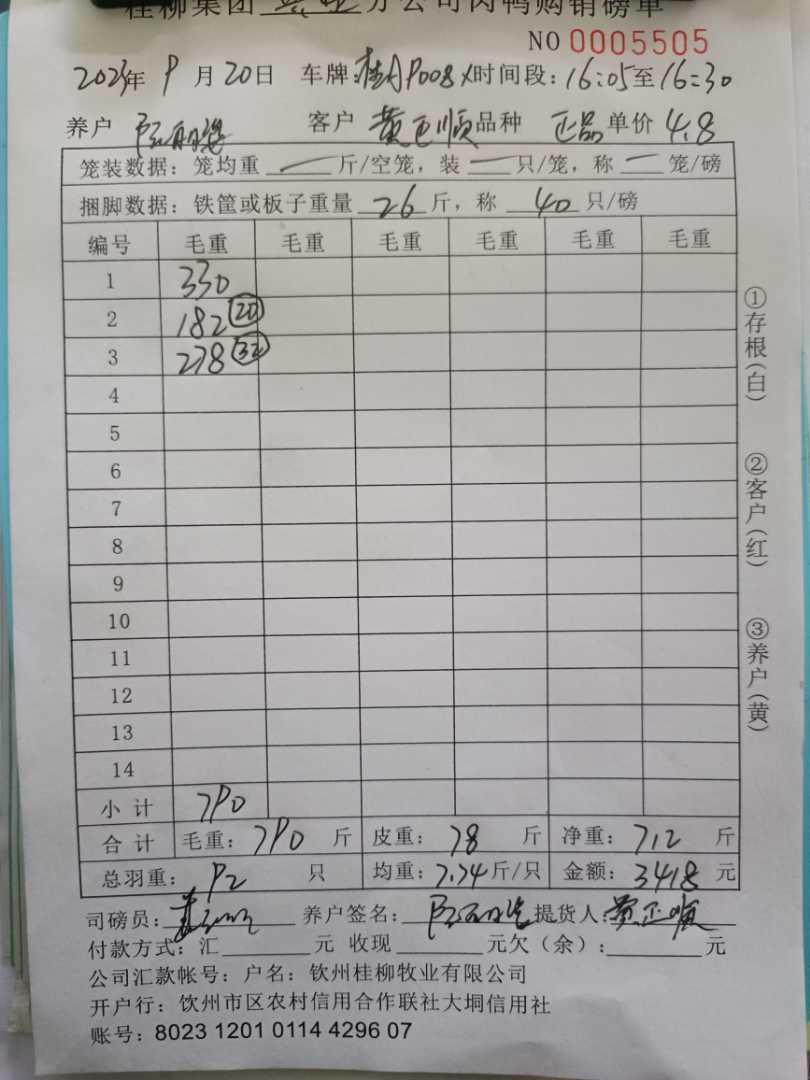 桂柳集团 分公司肉鸭购销磅单
NO 0005505
2023年 9月20日 车牌: 时间段:16:05至16:30
养户 客户 黄正顺 品种 正品 单价 4.8
笼装数据:笼均重 — 斤/空笼,装 — 只/笼,称 — 笼/磅
捆脚数据:铁筐或板子重量 26 斤,称 40 只/磅
编号 毛重 毛重 毛重 毛重 毛重 毛重
1 330
2 182 20
3 278 32
4
5
6
7
8
9
10
11
12
13
14
小计 790
合计 毛重:790 斤 皮重:78 斤 净重:712 斤
总羽重:92 只 均重:7.74斤/只 金额:3418 元
司磅员: 养户签名: 提货人:黄正顺
付款方式:汇 元 收现 元欠(余): 元
公司汇款帐号:户名:钦州桂柳牧业有限公司
开户行:饮州市区农村信用合作联社大垌信用社
账号:8023 1201 0114 4296 07
①存根(白)
②客户(红)
③养户(黄)